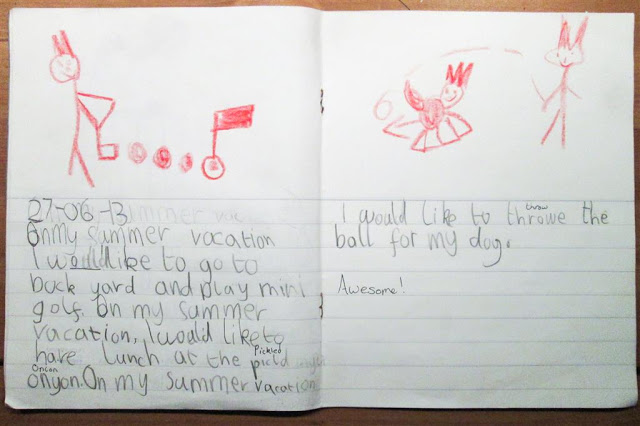 27-06-13
On my summer vacation
I would like to go to
back yard and play mini
golf. On my summer
vacation, I would like to
have lunch at the Pickled pickld
Onion onyon. On my summer vacation
I would like to throw throwe the
ball for my dog.
Awesome!